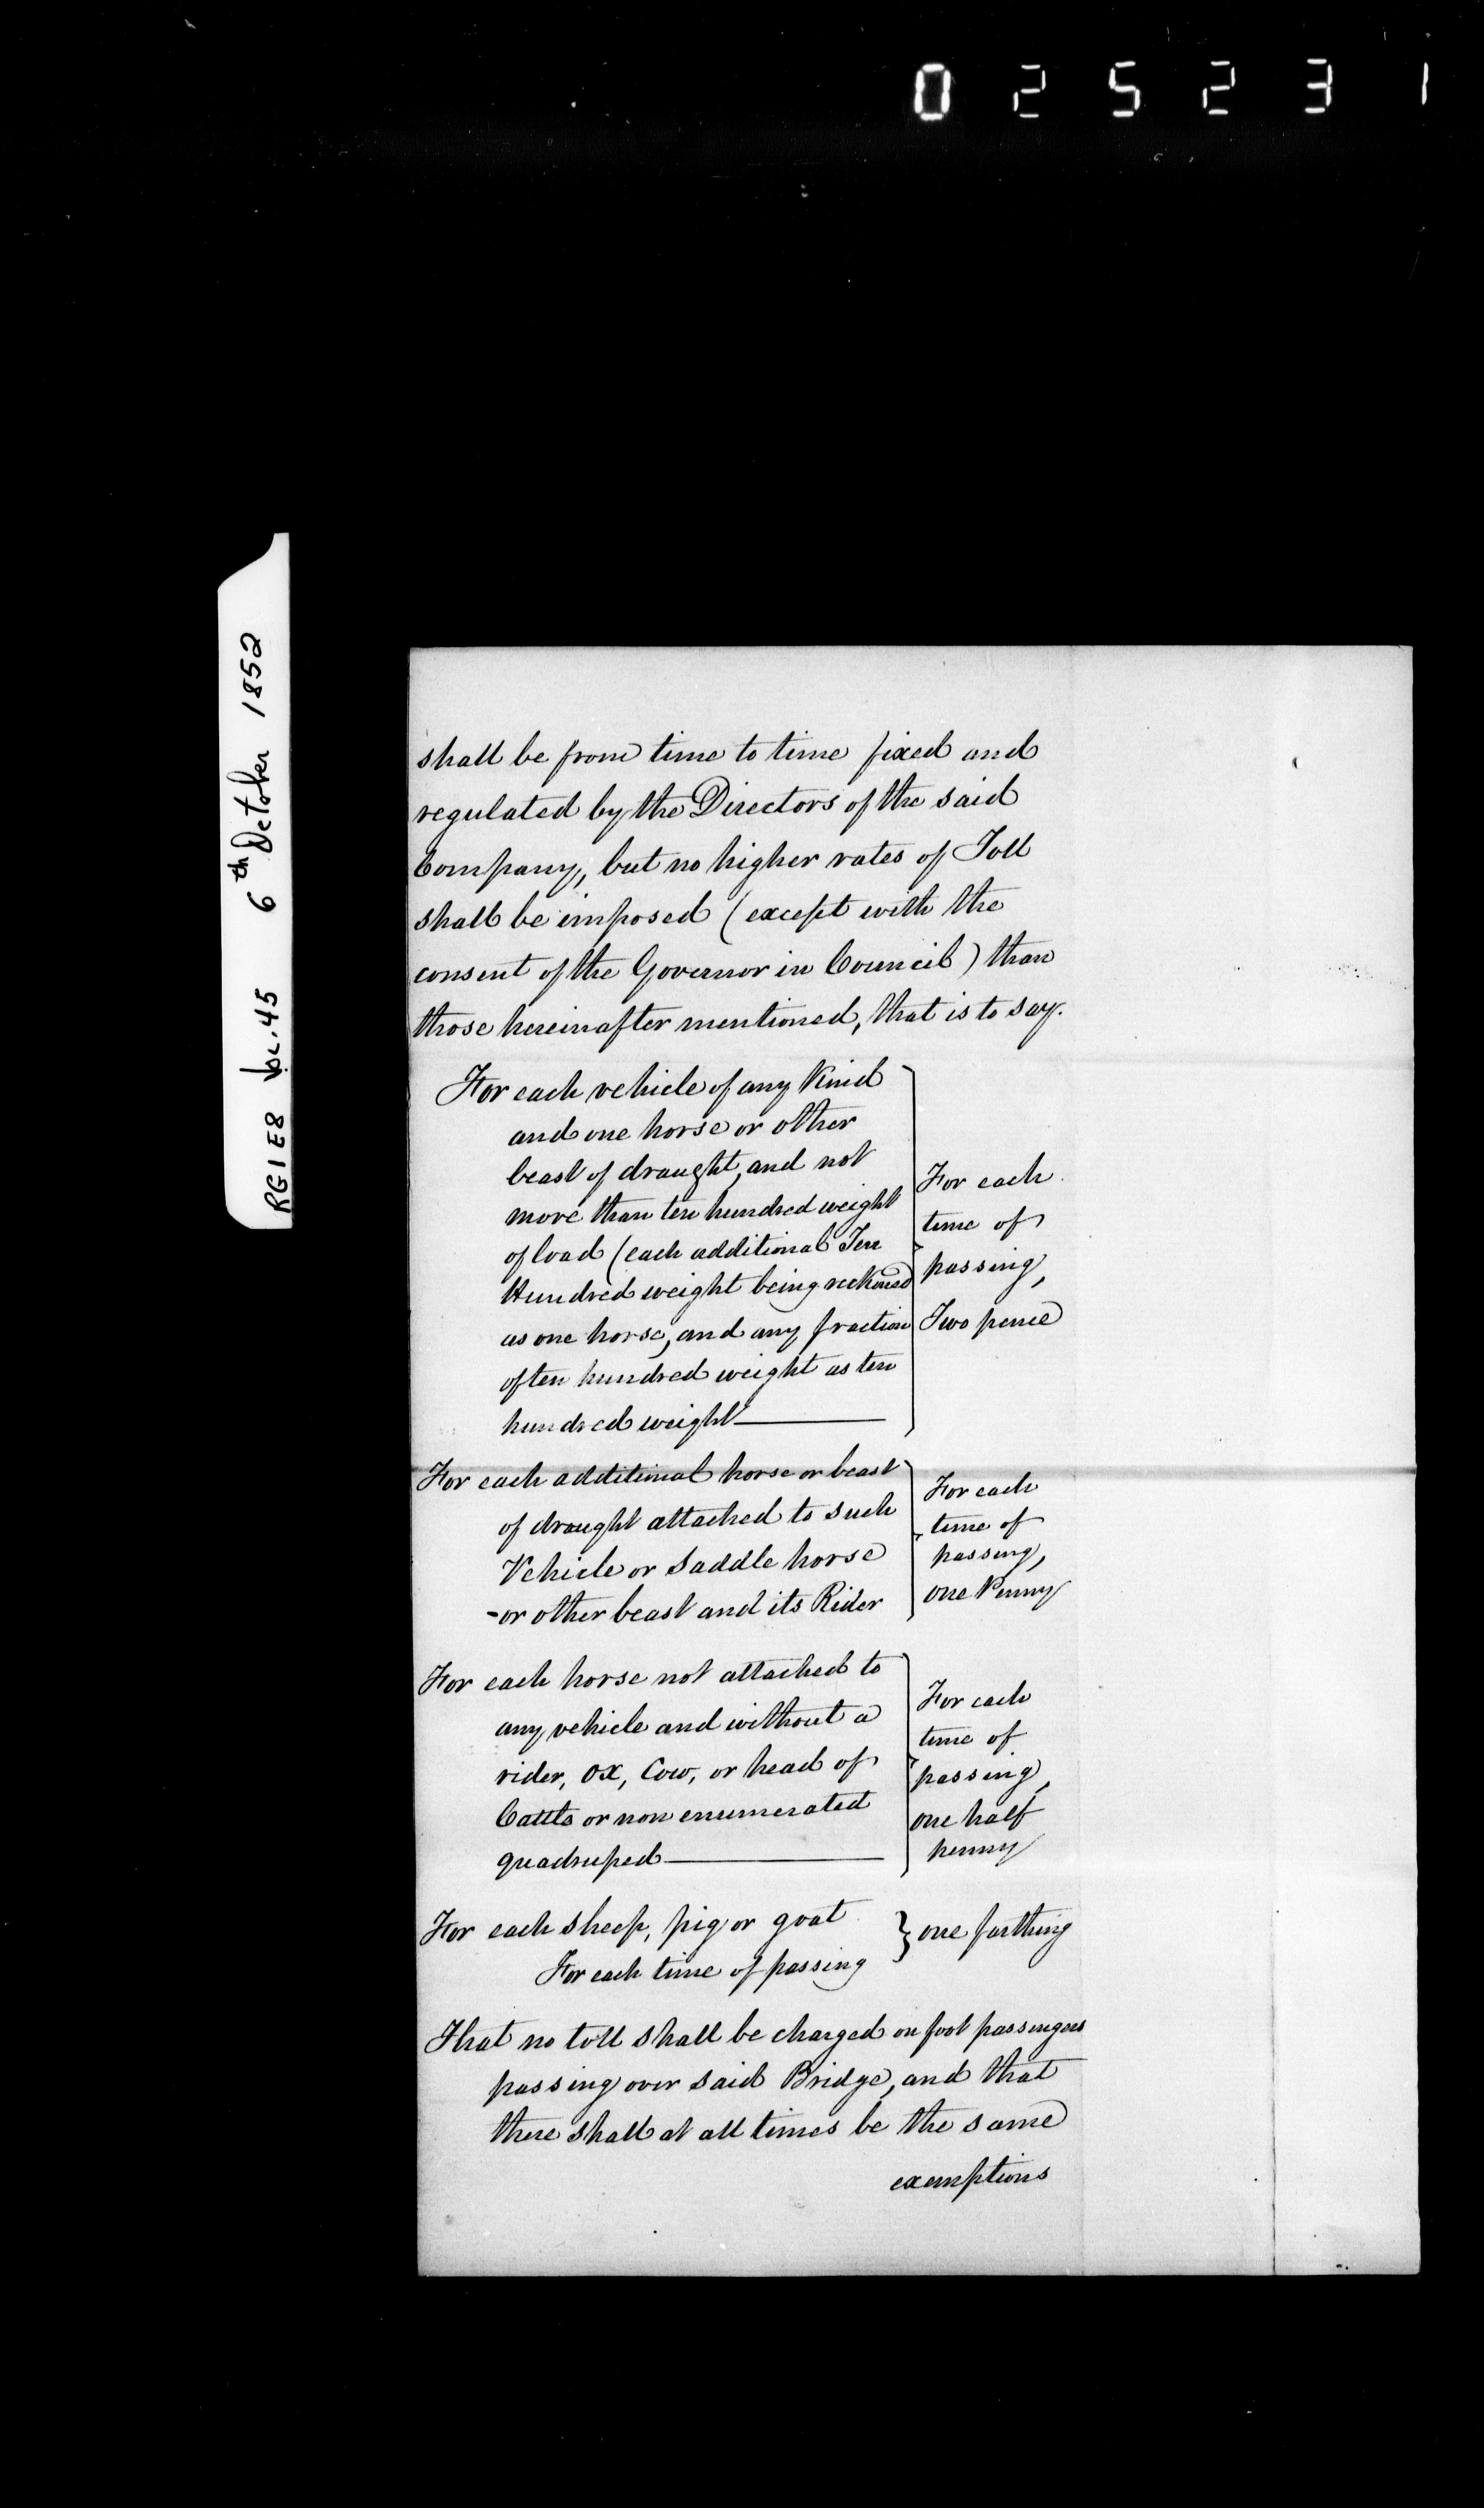 025231
RG1E8 Vol. 45 6th October 1852
shall be from time to time fixed and
regulated by the Directors of the said
Company, but no higher rates of Toll
shall be imposed (except with the
consent of the Governor in Council) than
those hereinafter mentioned, that is to say.
For each vehicle of any Kind
and one horse or other
beast of draught, and not
more than ten hundred weight
of load (each additional Ten
Hundred weight being reckoned
as one horse, and any fraction
of ten hundred weight as ten
hundred weight
For each
time of
passing,
Two pence
For each additional horse or beast
of draught attached to such
Vehicle or Saddle horse
-or other beast and its Rider
For each
time of
passing,
one Penny
For each horse not attached to
any vehicle and without a
rider, ox, Cow, or head of
Cattle or non enumerated
quadruped
For each
time of
passing,
one half
penny
For each sheep, pig or goat
For each time of passing
} one farthing
That no toll shall be charged on foot passengers
passing over said Bridge, and that
there shall at all times be the same
exemptions